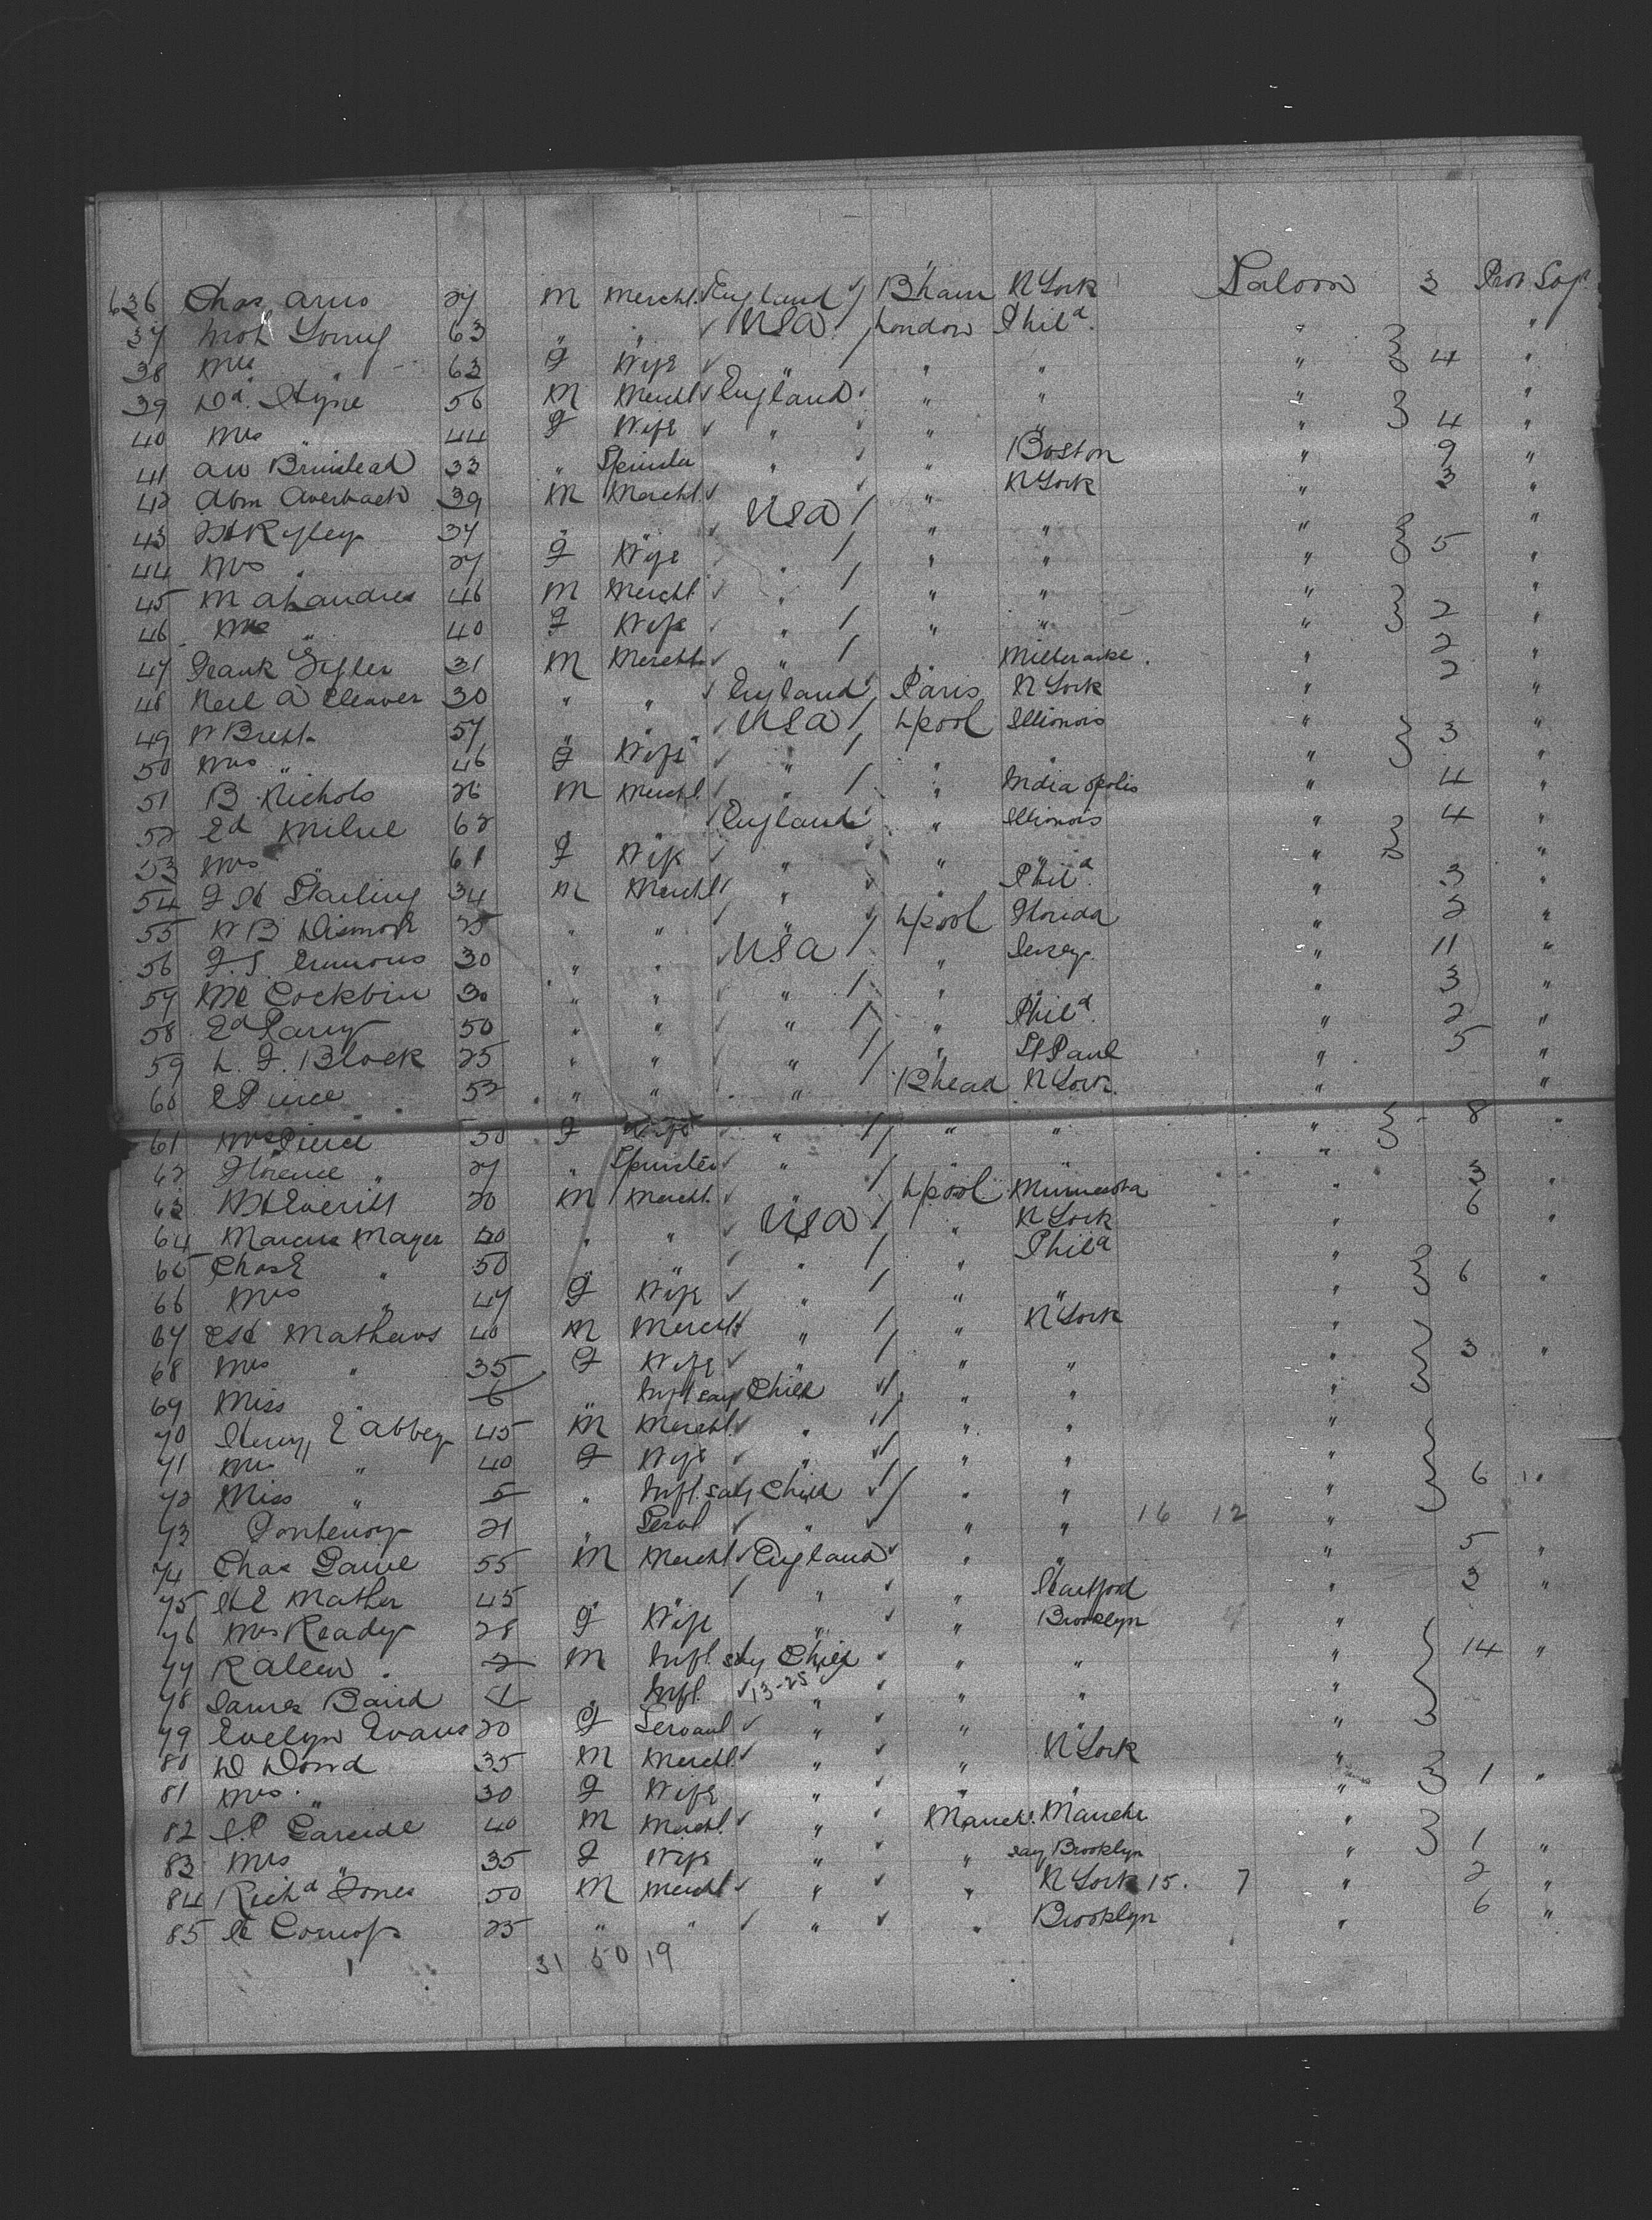 636 Chas Arns 27 M Mercht. England B'ham N York Saloon 3 Prov Sogr
37 Young 63 " " USA London Phila. " "
38 Mrs " 63 F Wife " " " " 4 "
39 Dd. Hyne 56 M Mercht England " " " "
40 Mrs " 44 F Wife " " " " 4 "
41 A W 33 " Spinster " " Boston " 9 "
42 Abm Averback 39 M Mercht. " N York " 3 "
43 Ryley 37 " " USA " " " "
44 Mrs " 27 F Wife " " " " 5 "
45 M A Landres 46 M Mercht " " " " "
46 Mrs " 40 F Wife " " " " 2 "
47 Frank 31 M Mercht " " Milwauke. " 2
48 Neil A Cleaver 30 " " England Paris N York " 2 "
49 W 57 " " USA L'pool Illionois " 3 "
50 Mrs " 46 F Wife " " " " "
51 B Nichols 26 M Mercht. " " Indiaopolis " 4 "
52 Ed Milne 62 England " Illionois " 4 "
53 Mrs " 61 F Wife " " " " "
54 F H Starling 34 M Mercht " " Phila. " 3 "
55 W B 25 " " " L'pool Florida " 2 "
56 F. S. Emmons 30 " " USA " Jersey. " 11 "
57 30 " " " " " " 3 "
58 Ed Parry 50 " " " " Phila. " 2 "
59 L. F. Block 25 " " " " St Paul " 5 "
60 E Pierce 52 " " " B'head N York. " "
61 Mrs Pierce 50 F Wife " " " " 8 "
62 Florence " 27 " Spinster " " " "
63 Everitt 20 M Mercht. " L'pool Minnesota " 3 "
64 Marcus Mayer 40 " " USA " N York " 6 "
65 Chas E " 50 " " " " Phila "
66 Mrs " 47 F Wife " " " " 6 "
67 Mathews 40 M Mercht " " N York "
68 Mrs " 35 F Wife " " " " 3 "
69 Miss " 6 " Inft say Child " " "
70 Henry E Abbey 45 M Mercht. " " " "
71 Mrs " 40 F Wife " " " "
72 Miss " 5 " Inft. say Child " " " 6 "
73 Fontenoy 21 " Servt " " " 16 12 "
74 Chas 55 M Mercht England " " " 5 "
75 H E Mather 45 " " " " Hartford " 2 "
76 Mrs Ready 28 F Wife " " Brooklyn "
77 2 M Inft. say Child " " " 14 "
78 James Baird 1 " Inft. 13-25 " " " "
79 Evelyn Evans 20 F Servant " " " "
80 D Dowd 35 M Mercht. " " N York "
81 Mrs " 30 F Wife " " " " 1 "
82 Garside 40 M Mercht. " Manchr. Manchr "
83 Mrs " 35 F Wife " " say Brooklyn " 1 "
84 Richd Jones 50 M Mercht " " N York 15. 7 " 2 "
85 25 " " " " Brooklyn " 6 "
31 50 19